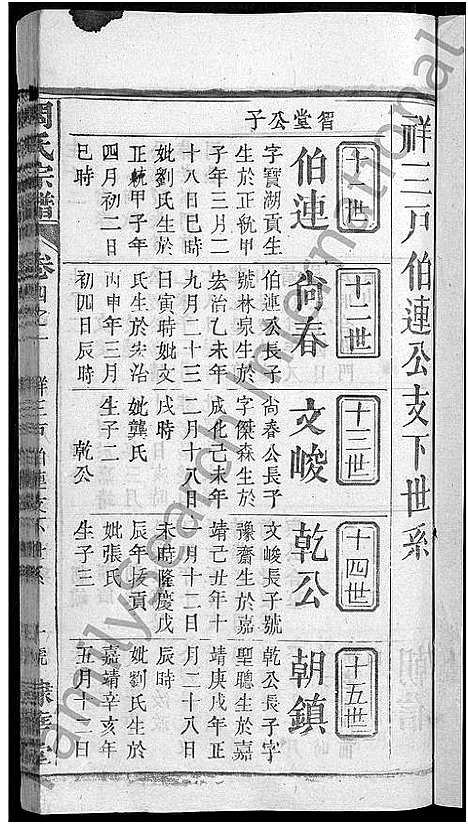 祥三戶伯連公支下世系
十一世
智堂公子
伯連
字寶湖貢生
生於正統甲
子年三月二
十八日巳時
妣劉氏生於
正統甲子年
四月初二日
巳時
十二世
尙春
伯連公長子
號林泉生於
宏治乙未年
九月二十三
日寅時妣文
氏生於宏治
丙申年三月
初四日辰時
十三世
文峻
尙春公長子
字傑森生於
成化己未年
二月十八日
戌時
妣龔氏
生子二
乾公
十四世
乾公
文峻長子號
豫齋生於嘉
靖己丑年十
一月十二日
未時隆慶戊
辰年恢貢
妣張氏
生子三
十五世
朝鎮
乾公長子字
聖聰生於嘉
靖庚戌年正
月二十八日
辰時
妣劉氏生於
嘉靖辛亥年
五月十二日
周氏宗譜
卷四之一
祥三戶伯連支下世系
FamilySearch International